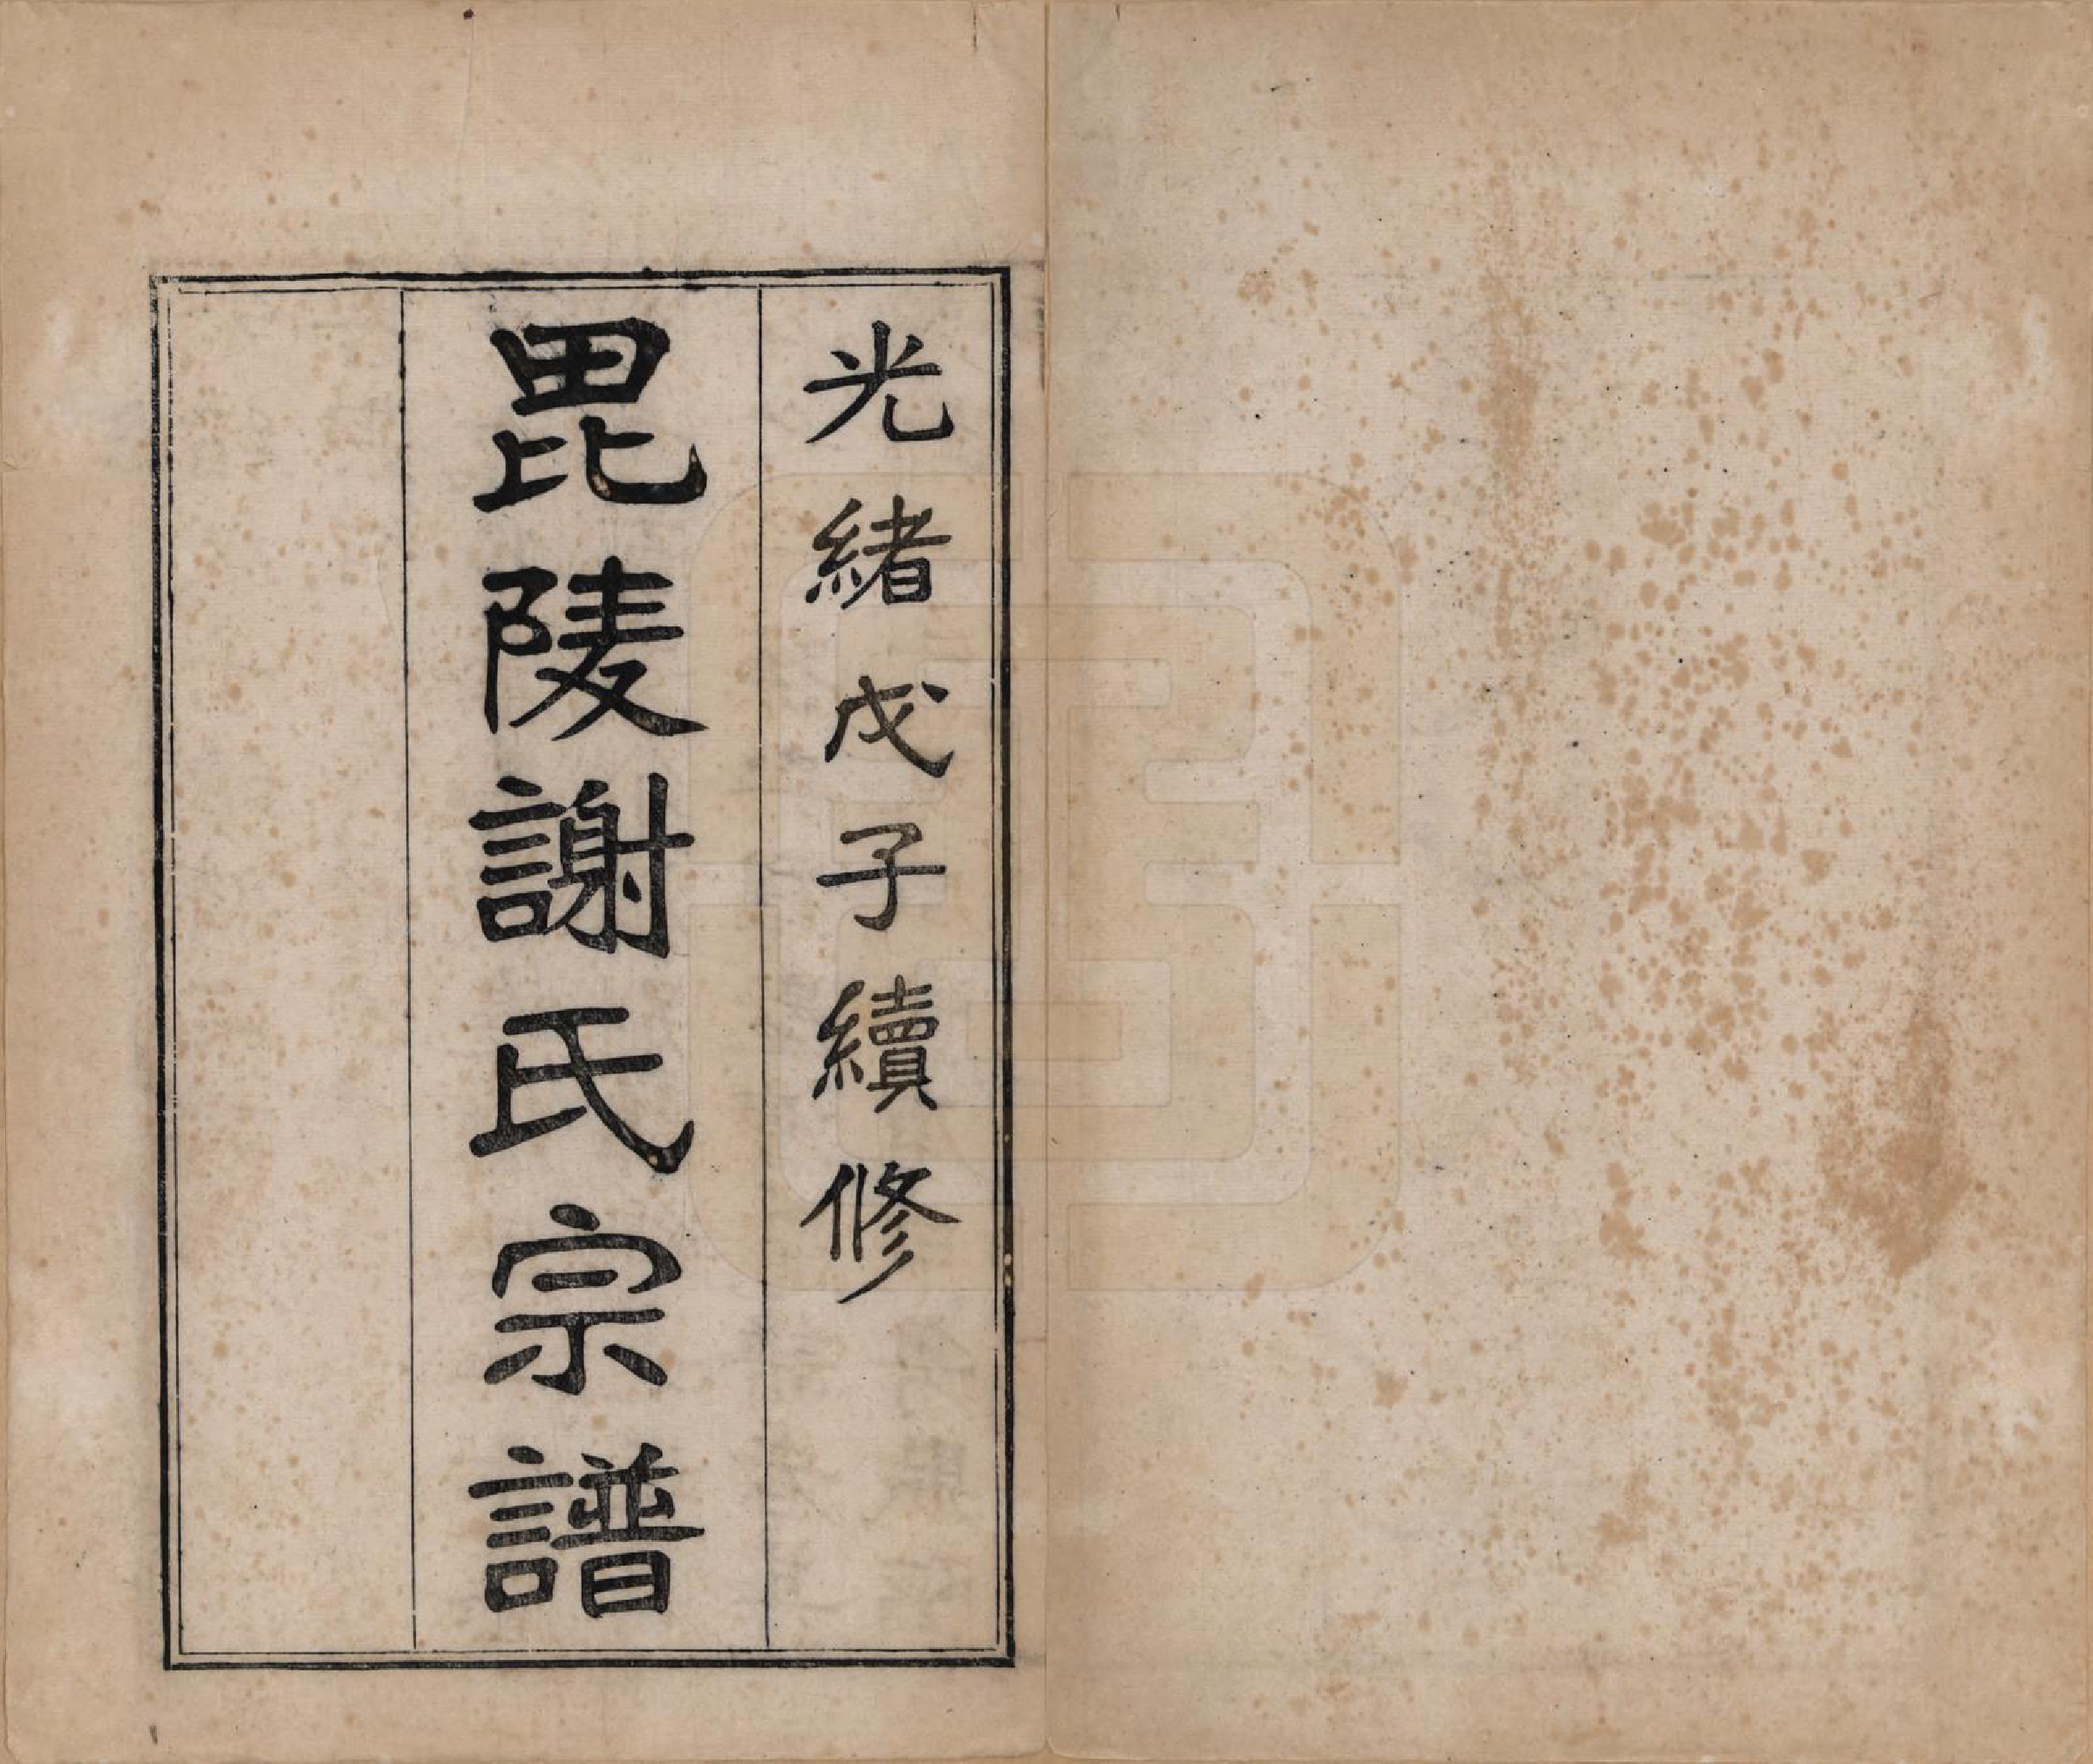 光緒戊子續修
毘陵謝氏宗譜